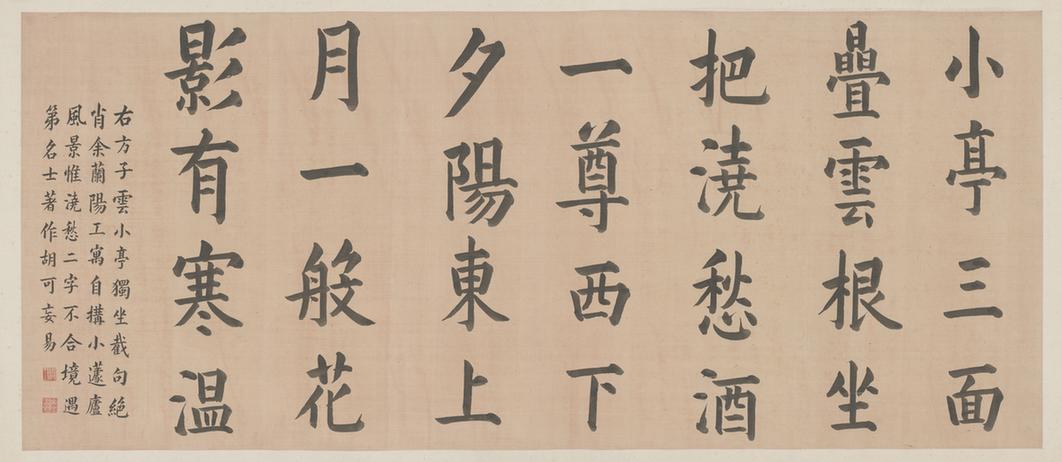 小亭三面
疊雲根坐
把澆愁酒
一尊西下
夕陽東上
月一般花
影有寒温
右方子雲小亭獨坐截句絕
肖余蘭陽工寓自構小蘧廬
風景惟澆愁二字不合境遇
第名士著作胡可妄易